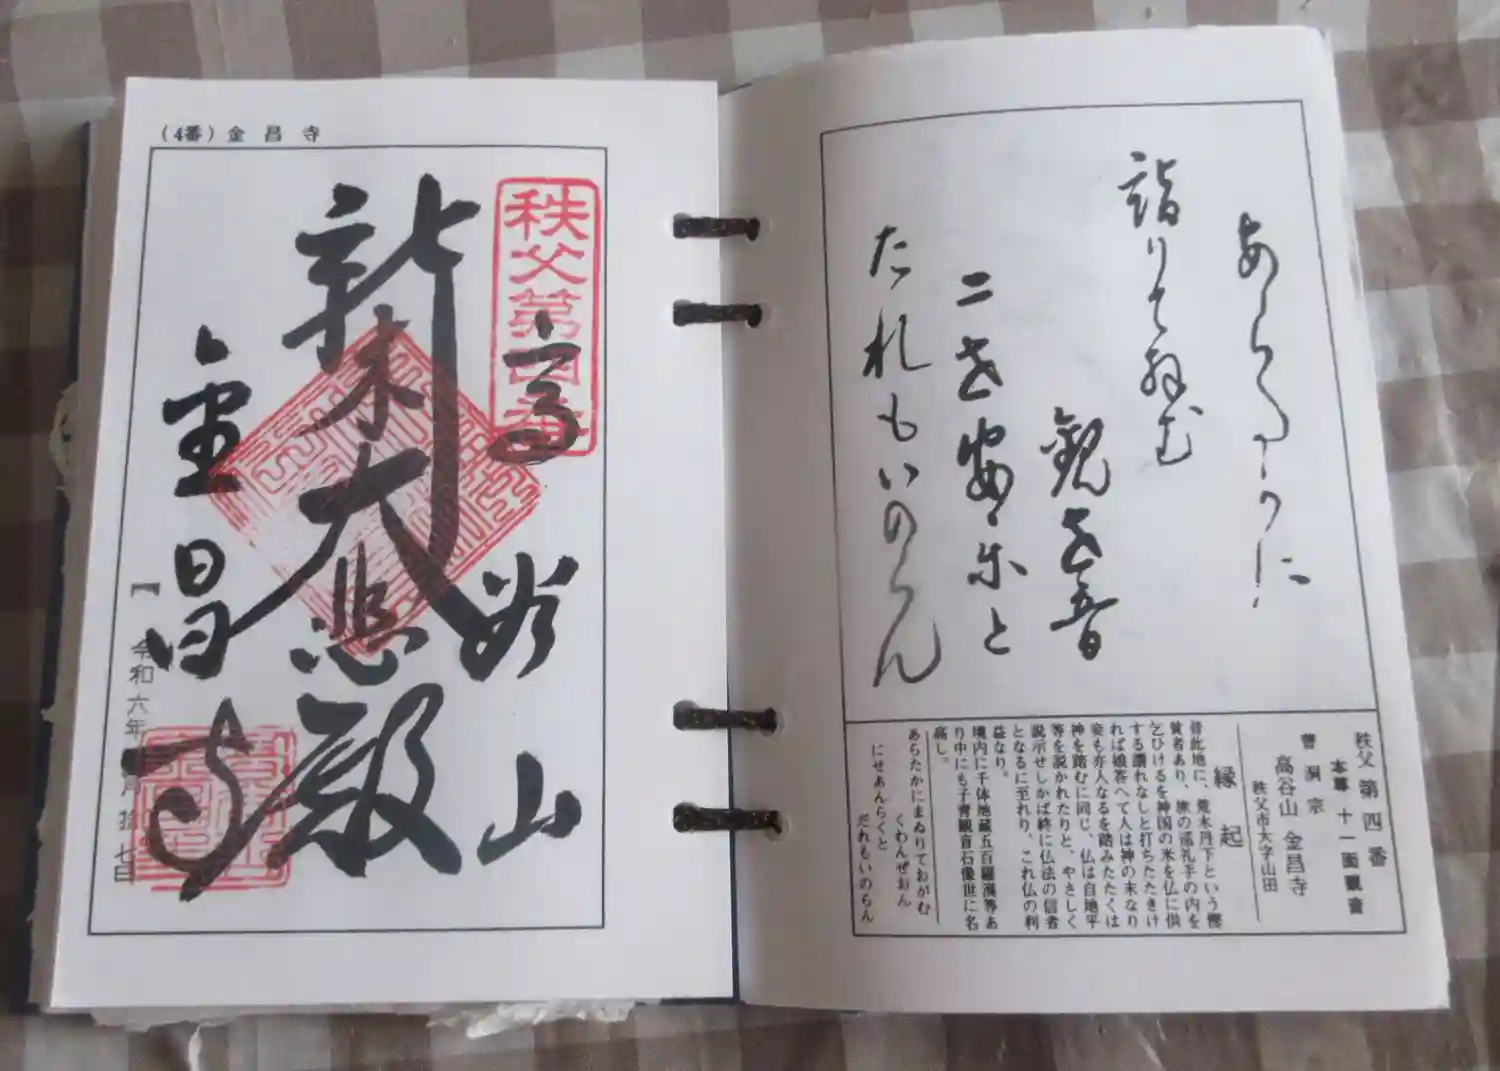 (4番)金昌寺
秩父第四番
高谷山
新木大悲殿
金昌寺
令和六年 月拾七日
あらたかに
詣りておがむ
観世音
二世安楽と
たれもいのらん
秩父第四番
本尊 十一面観音
曹洞宗
高谷山 金昌寺
秩父市大字山田
縁起
昔此地に、荒木丹下という慳
貪者あり、旅の巡礼手の内を
乞ひけるを神国の米を仏に供
する謂れなしと打ちたたきけ
れば娘答へて人は神の末なり
妾も亦人なるを踏みたたくは
神を踏むに同じ、仏は自地平
等を説かれたりと、やさしく
説示せしかば終に仏法の信者
となるに至れり、これ仏の利
益なり。
境内に千体地蔵五百羅漢等あ
り中にも子育観音石像世に名
高し。
あらたかにまゐりておがむ
くわんぜおん
にせあんらくと
だれもいのらん